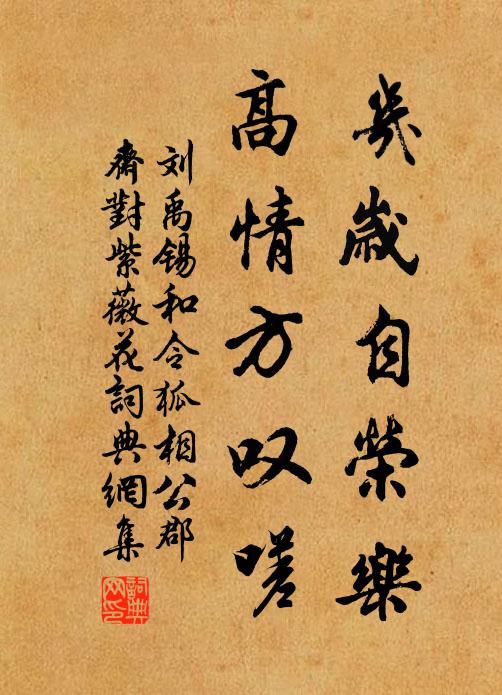 幾歲自榮樂
高情方叹嗟
刘禹锡和令狐相公郡
齋對紫薇花詞典網集
詞典网印